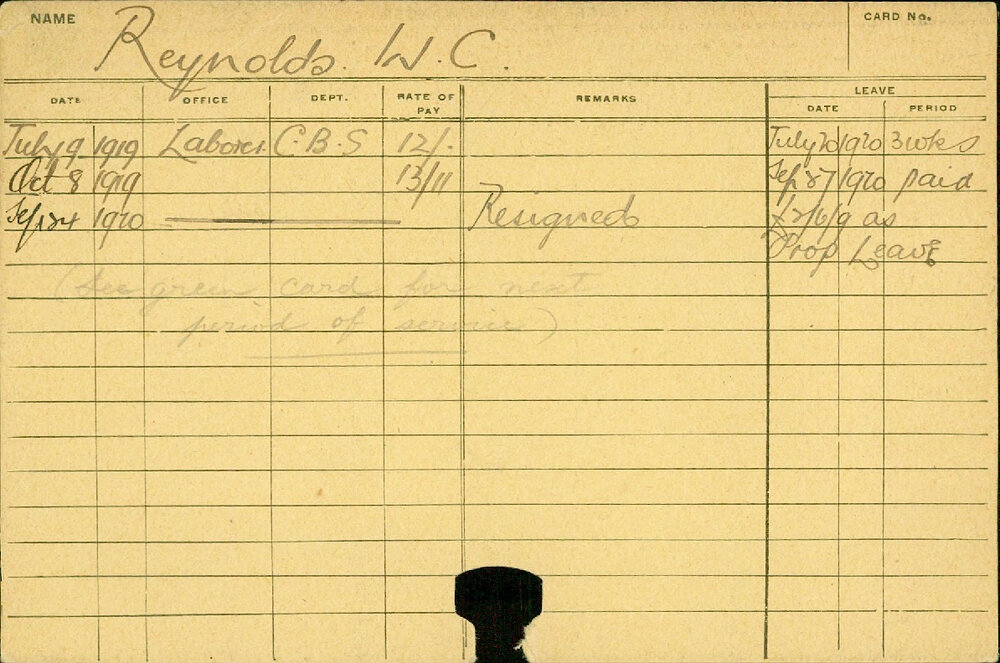 NAME Reynolds. W. C. CARD No.
DATE OFFICE DEPT. RATE OF PAY REMARKS LEAVE
DATE PERIOD
July 9 1919 Laborer. C.B.S 12/- July 20 1920 3 wks
Oct 8 1919 13/11 Sep 27 1920 paid
Sep 24 1920 Resigned £2/6/9 as
Prop Leave
(See green card for next
period of service)